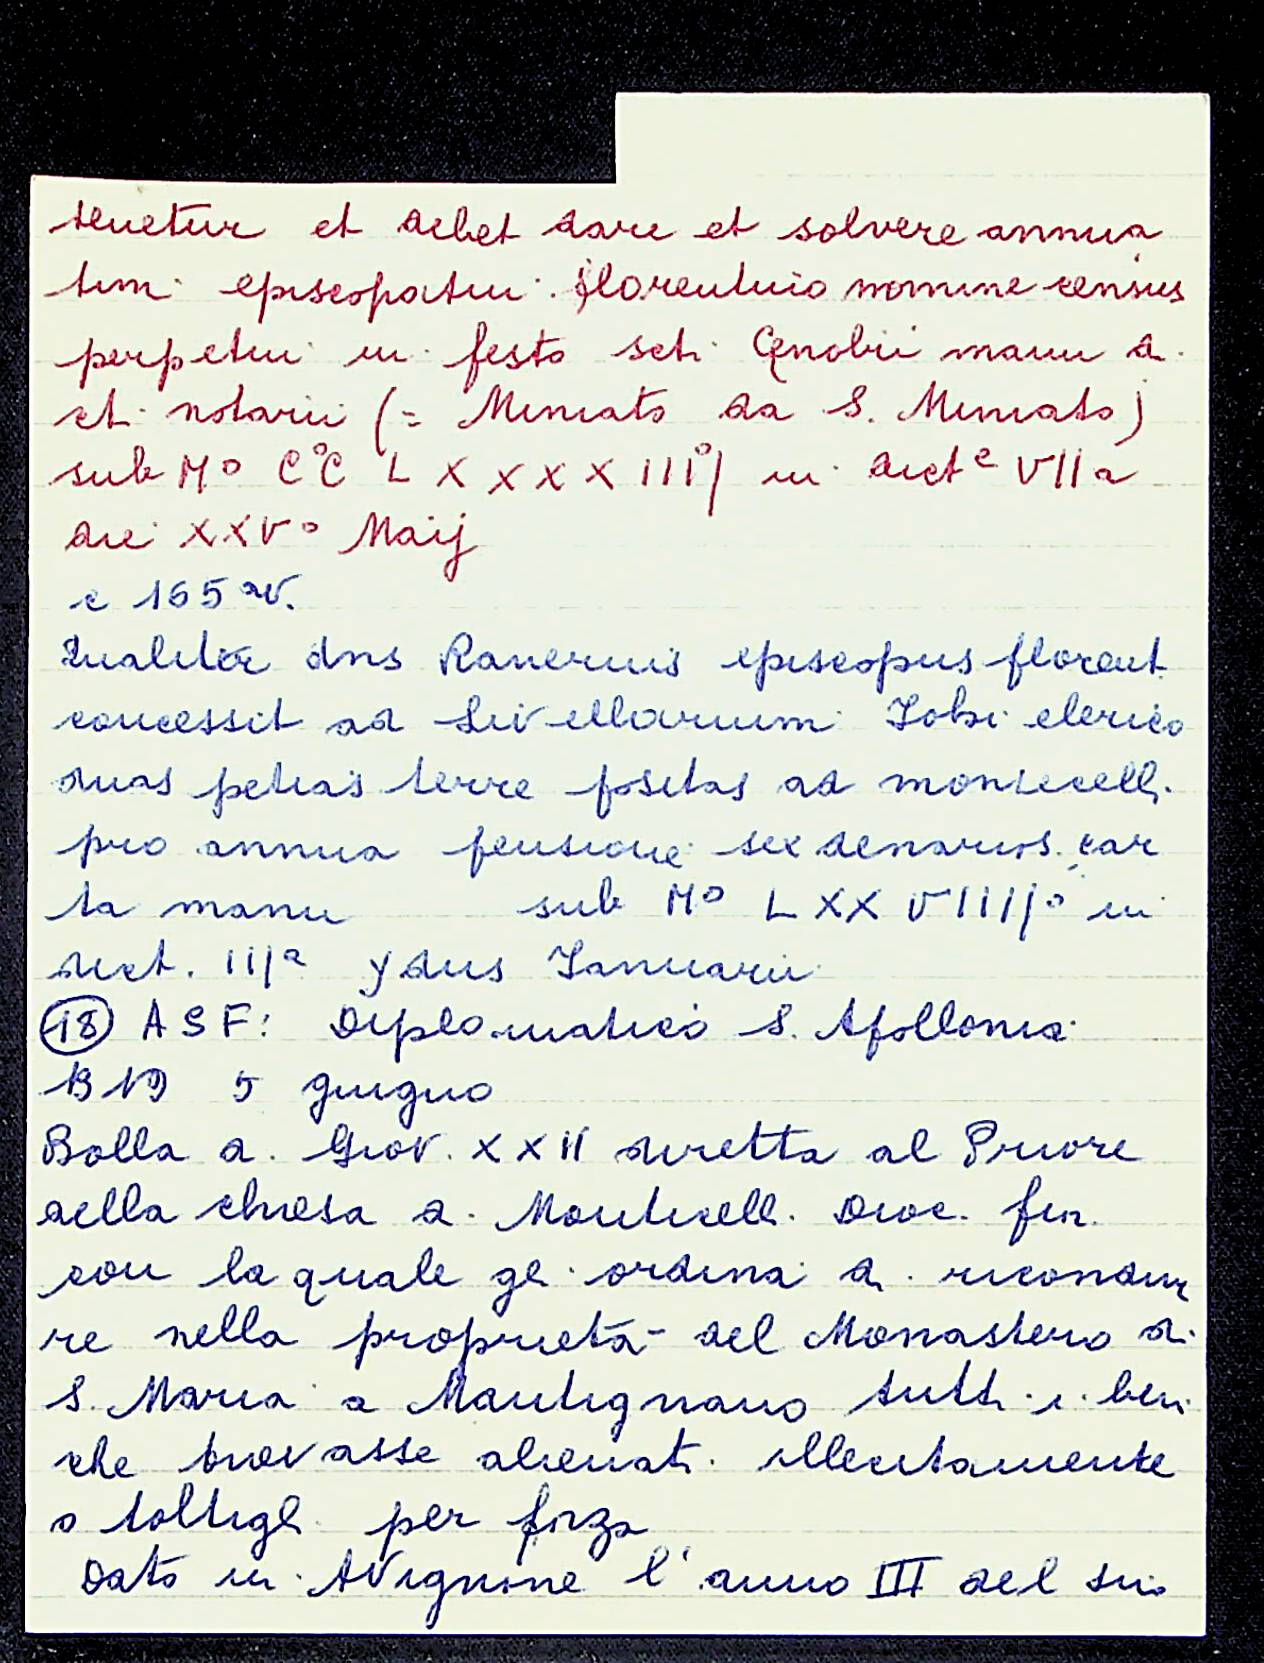 tenetur et debet dare et solvere annua
tim episcopatui florentino nomine census
perpetui in festo scti Çenobii manu d.
cti notarii (= Miniato da S. Miniato)
sub Mº CºC L X X X X IIIº] in dictᵉ VIIa
die XXVº Maij
c 165 av.
Qualiter dns Ranerius episcopus florent
concessit ad livellarium Iohi clerico
duas petias terre positas ad monticell.
pro annua pensione sex denarios. car
ta manu sub Mº L XX VIIIIº in
dict. IIIª ydus Ianuarii
(18) ASF: Diplomatico S. Apollonia
1319 5 giugno
Bolla di Giov. XXII diretta al Priore
della chiesa di Monticelli. Dioc. fior.
con la quale gli ordina di ricondur
re nella proprietà del Monastero di
S. Maria a Mantignano tutti i beni
che trovasse alienati illecitamente
o toltigli per forza
Dato in Avignone l'anno III del suo